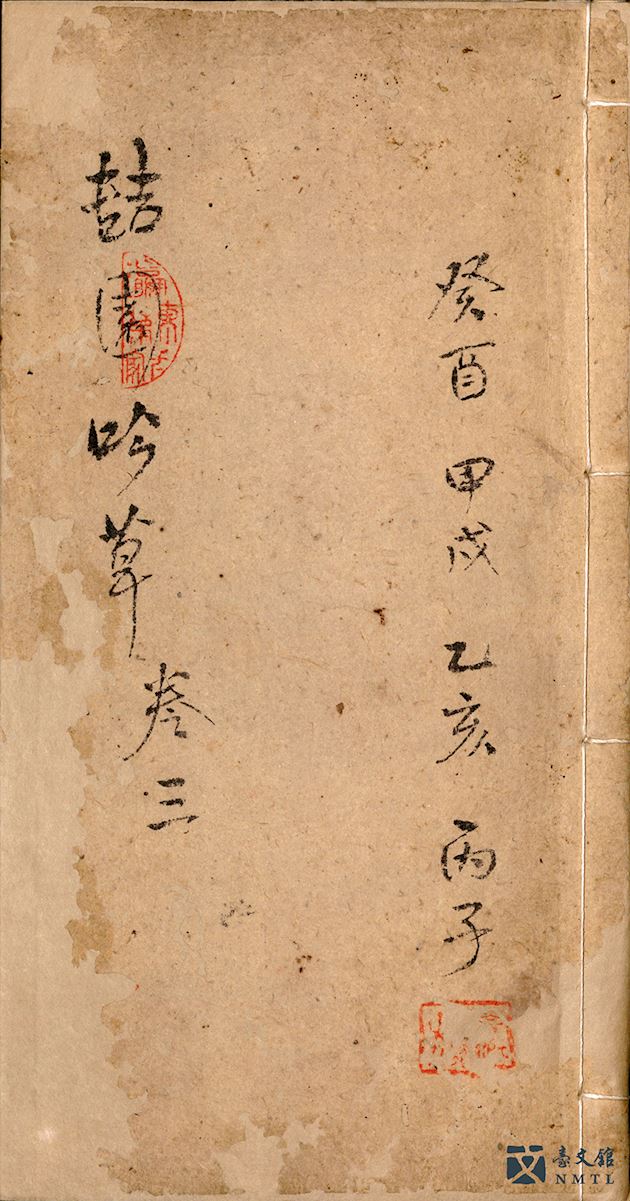 癸酉 甲戌 乙亥 丙子
喆園吟草卷三
臺文館
NMTL